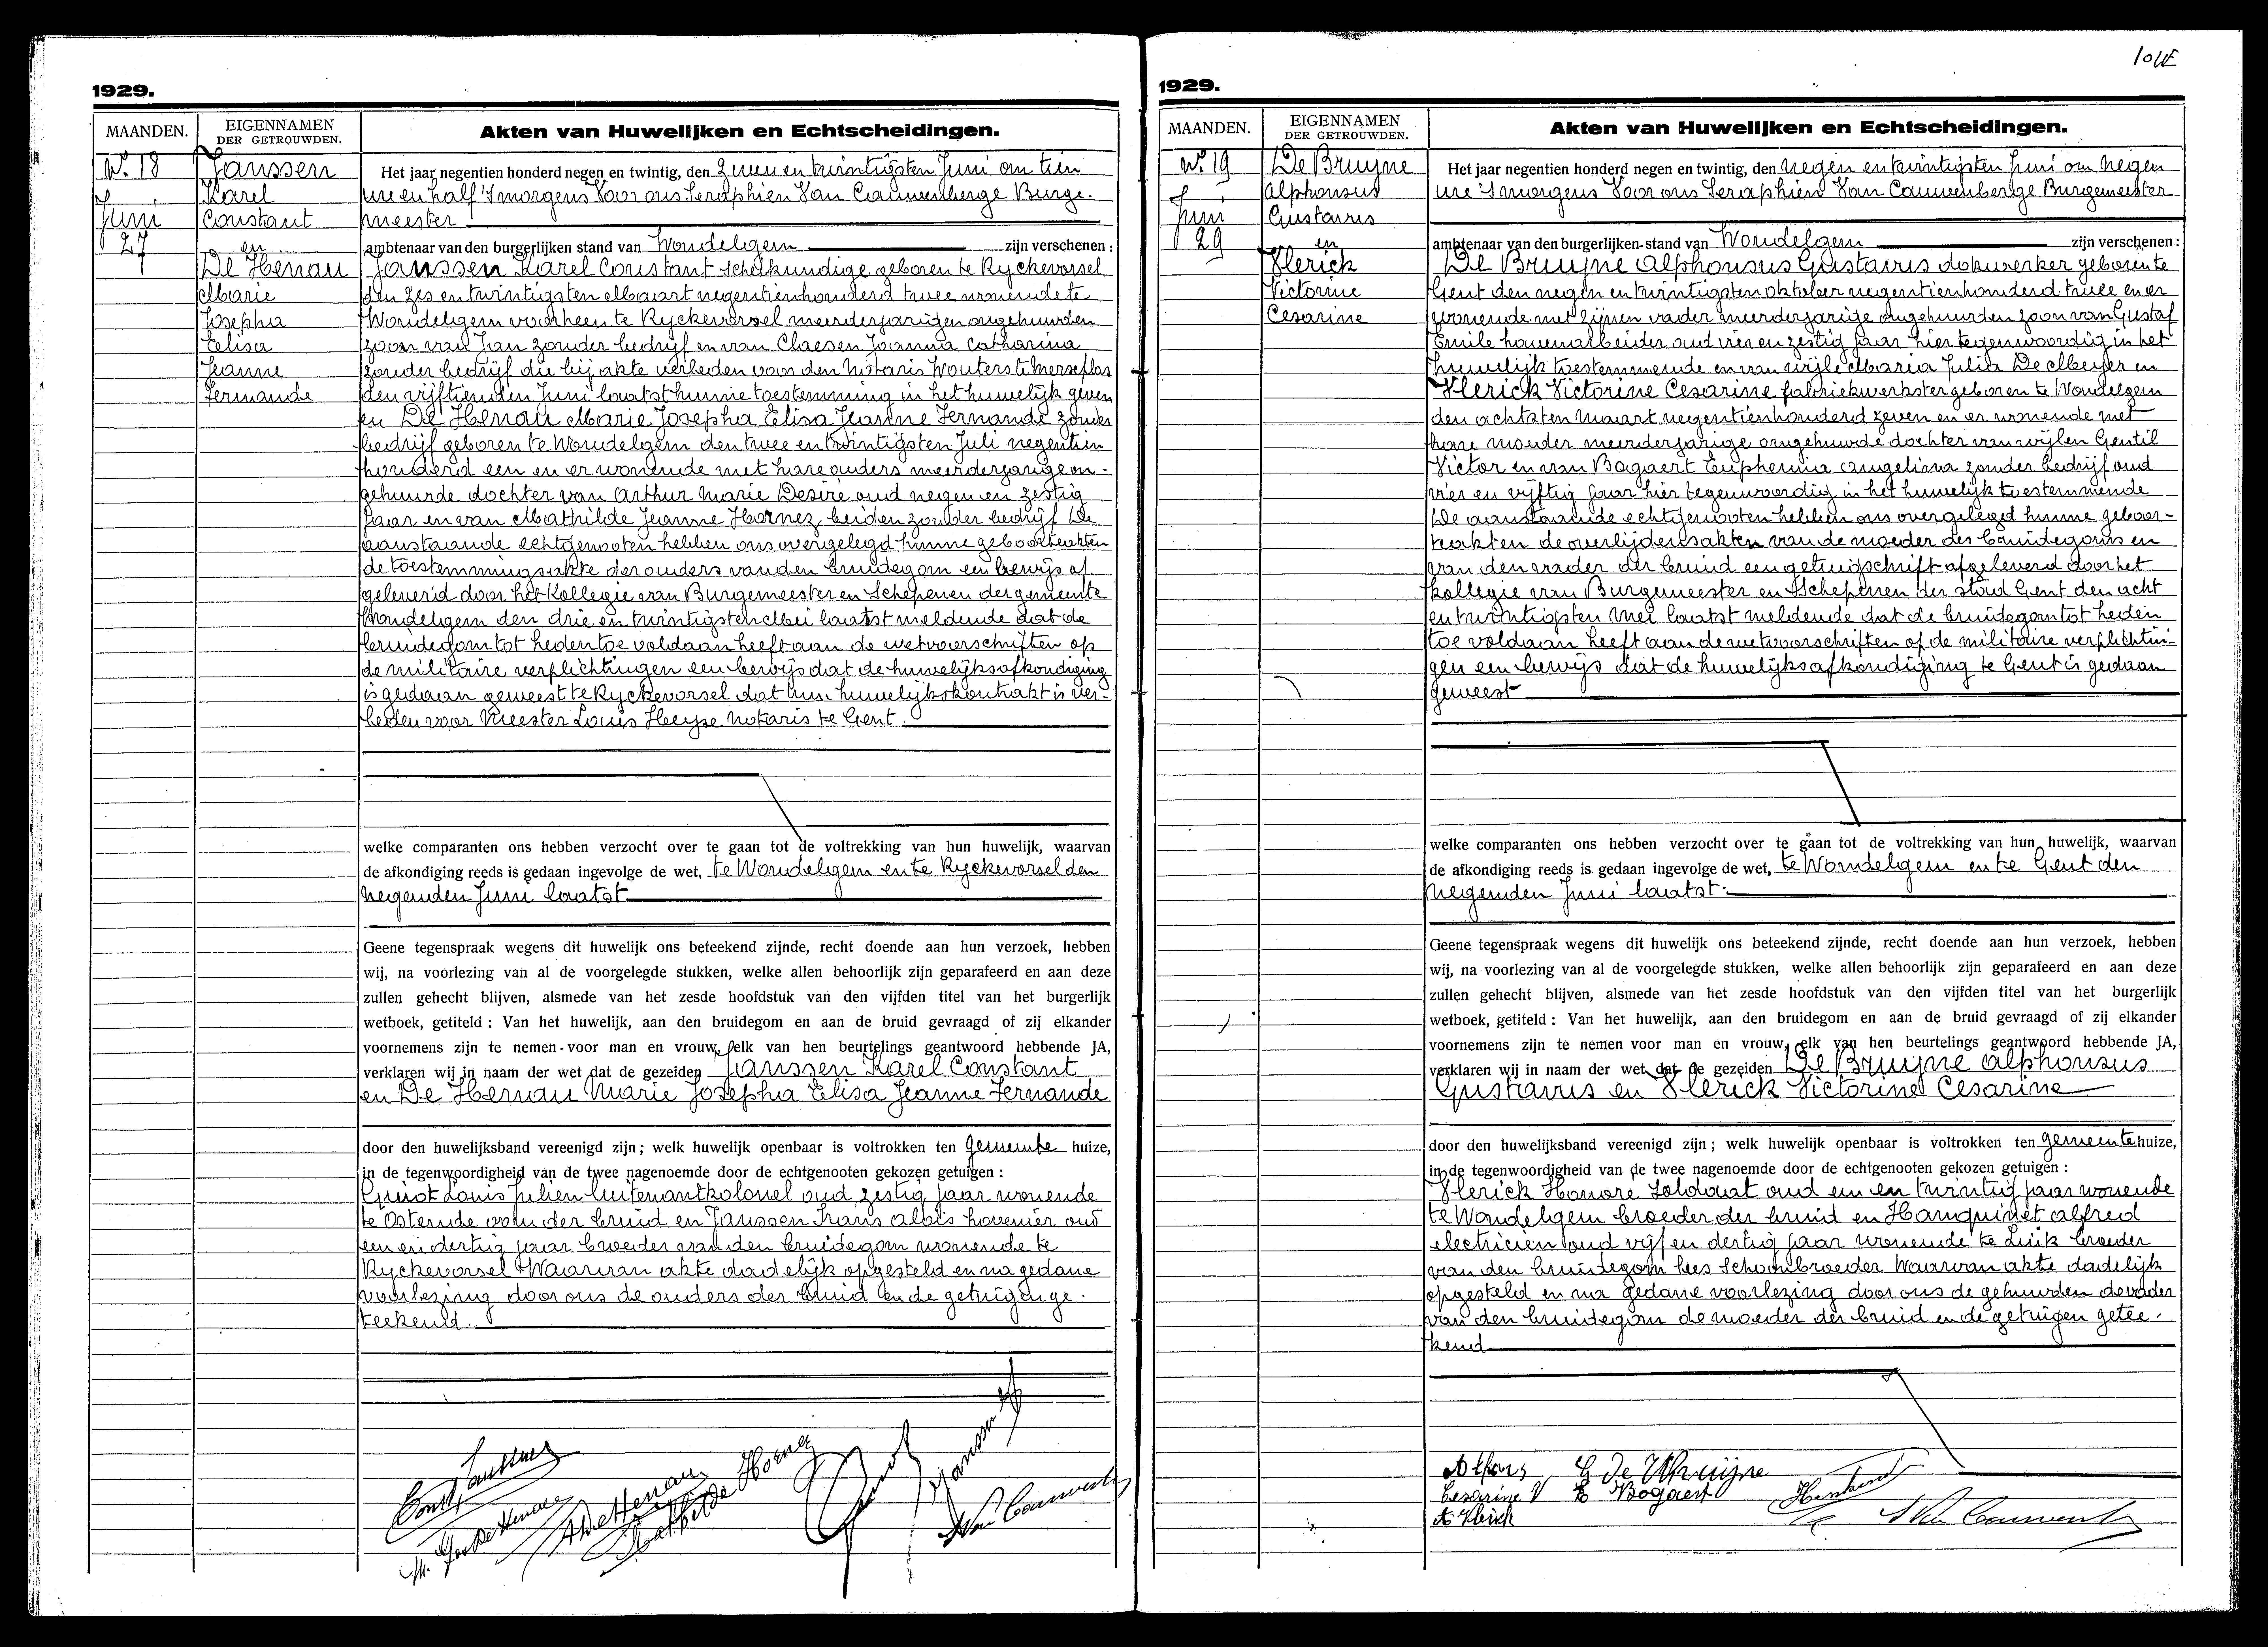 1929.
MAANDEN.
EIGENNAMEN
DER GETROUWDEN.
Akten van Huwelijken en Echtscheidingen.
N.º 18
Juni
27
Janssen
Karel
Constant
en
De Henau
Marie
Josepha
Elisa
Jeanne
Fernande
Het jaar negentien honderd negen en twintig, den zeven en twintigsten Juni om tien
ure en half 's morgens Voor ons Seraphien Van Cauwenberge Burge-
meester
ambtenaar van den burgerlijken stand van Wondelgem zijn verschenen :
Janssen Karel Constant scheikundige geboren te Ryckevorsel
den zes en twintigsten Maart negentienhonderd twee wonende te
Wondelgem voorheen te Ryckevorsel meerderjarigen ongehuwden
zoon van Jan zonder bedrijf en van Claesen Joanna Catharina
zonder bedrijf die bij akte verleden voor den Notaris Wouters te Merxplas
den vijftienden Juni laatst hunne toestemming in het huwelijk geven
en De Henau Marie Josepha Elisa Jeanne Fernande zonder
bedrijf geboren te Wondelgem den twee en twintigsten Juli negentien
honderd een en er wonende met hare ouders meerderjarige on-
gehuwde dochter van Arthur Marie Desiré oud negen en zestig
jaar en van Mathilde Jeanne Hornez beiden zonder bedrijf De
aanstaande echtgenooten hebben ons overgelegd hunne geboorteakten
de toestemmingsakte der ouders van den bruidegom een bewijs af
geleverd door het Kollegie van Burgemeester en Schepenen der gemeente
Wondelgem den drie en twintigsten Mei laatst meldende dat de
bruidegom tot heden toe voldaan heeft aan de wetvoorschriften op
de militaire verplichtingen een bewijs dat de huwelijksafkondiging
is gedaan geweest te Ryckevorsel dat hun huwelijkskontrakt is ver-
leden voor Meester Louis Heyse Notaris te Gent.
welke comparanten ons hebben verzocht over te gaan tot de voltrekking van hun huwelijk, waarvan
de afkondiging reeds is gedaan ingevolge de wet, te Wondelgem en te Ryckevorsel den
negenden Juni laatst
Geene tegenspraak wegens dit huwelijk ons beteekend zijnde, recht doende aan hun verzoek, hebben
wij, na voorlezing van al de voorgelegde stukken, welke allen behoorlijk zijn geparafeerd en aan deze
zullen gehecht blijven, alsmede van het zesde hoofdstuk van den vijfden titel van het burgerlijk
wetboek, getiteld : Van het huwelijk, aan den bruidegom en aan de bruid gevraagd of zij elkander
voornemens zijn te nemen voor man en vrouw, elk van hen beurtelings geantwoord hebbende JA,
verklaren wij in naam der wet dat de gezeiden Janssen Karel Constant
en De Henau Marie Josepha Elisa Jeanne Fernande
door den huwelijksband vereenigd zijn ; welk huwelijk openbaar is voltrokken ten gemeente huize,
in de tegenwoordigheid van de twee nagenoemde door de echtgenooten gekozen getuigen :
Louis Julien luitenantkolonel oud zestig jaar wonende
te Ostende oom der bruid en Janssen Frans Aloïs hovenier oud
een en dertig jaar broeder van den bruidegom wonende te
Ryckevorsel Waarvan akte dadelijk opgesteld en na gedane
voorlezing door ons de ouders der bruid en de getuigen ge-
teekend.
Const Janssens
M. Jos De Henau
A De Henau
Mathilde Hornez
Janssen
Van Cauwenb
1929.
MAANDEN.
EIGENNAMEN
DER GETROUWDEN.
Akten van Huwelijken en Echtscheidingen.
N.º 19
Juni
29
De Bruyne
Alphonsus
Gustavus
en
Vlerick
Victorine
Cesarine
Het jaar negentien honderd negen en twintig, den negen en twintigsten Juni om negen
ure 's morgens Voor ons Seraphien Van Cauwenberge Burgemeester
ambtenaar van den burgerlijken stand van Wondelgem zijn verschenen :
De Bruyne Alphonsus Gustavus dokwerker geboren te
Gent den negen en twintigsten oktober negentienhonderd twee en er
wonende met zijnen vader meerderjarige ongehuwden zoon van Gustaf
Emile havenarbeider oud vier en zestig jaar hier tegenwoordig in het
huwelijk toestemmende en van wijle Maria Julia De Meyer en
Vlerick Victorine Cesarine fabriekwerkster geboren te Wondelgem
den achtsten Maart negentienhonderd zeven en er wonende met
hare moeder meerderjarige ongehuwde dochter van wijlen Gentil
Victor en van Bogaert Euphemia Angelina zonder bedrijf oud
vier en vijftig jaar hier tegenwoordig in het huwelijk toestemmende
De aanstaande echtgenooten hebben ons overgelegd hunne geboor-
teakten de overlijdensakten van de moeder des bruidegoms en
van den vader der bruid een getuigschrift afgeleverd door het
kollegie van Burgemeester en Schepenen der stad Gent den acht
en twintigsten Mei laatst meldende dat de bruidegom tot heden
toe voldaan heeft aan de wetvoorschriften op de militaire verplichtin-
gen een bewijs dat de huwelijksafkondiging te Gent is gedaan
geweest
welke comparanten ons hebben verzocht over te gaan tot de voltrekking van hun huwelijk, waarvan
de afkondiging reeds is gedaan ingevolge de wet, te Wondelgem en te Gent den
negenden Juni laatst.
Geene tegenspraak wegens dit huwelijk ons beteekend zijnde, recht doende aan hun verzoek, hebben
wij, na voorlezing van al de voorgelegde stukken, welke allen behoorlijk zijn geparafeerd en aan deze
zullen gehecht blijven, alsmede van het zesde hoofdstuk van den vijfden titel van het burgerlijk
wetboek, getiteld : Van het huwelijk, aan den bruidegom en aan de bruid gevraagd of zij elkander
voornemens zijn te nemen voor man en vrouw, elk van hen beurtelings geantwoord hebbende JA,
verklaren wij in naam der wet dat de gezeiden De Bruyne Alphonsus
Gustavus en Vlerick Victorine Cesarine
door den huwelijksband vereenigd zijn ; welk huwelijk openbaar is voltrokken ten gemeente huize,
in de tegenwoordigheid van de twee nagenoemde door de echtgenooten gekozen getuigen :
Vlerick Honore Soldaat oud een en twintig jaar wonende
te Wondelgem broeder der bruid en Hanquinet Alfred
electricien oud vijf en dertig jaar wonende te Luik broeder
van den bruidegom lees Schoonbroeder Waarvan akte dadelijk
opgesteld en na gedane voorlezing door ons de gehuwden de vader
van den bruidegom de moeder der bruid en de getuigen getee-
kend
G De Bruijne
Cesarine V E Bogaert
Vlerick
Van Cauwenb